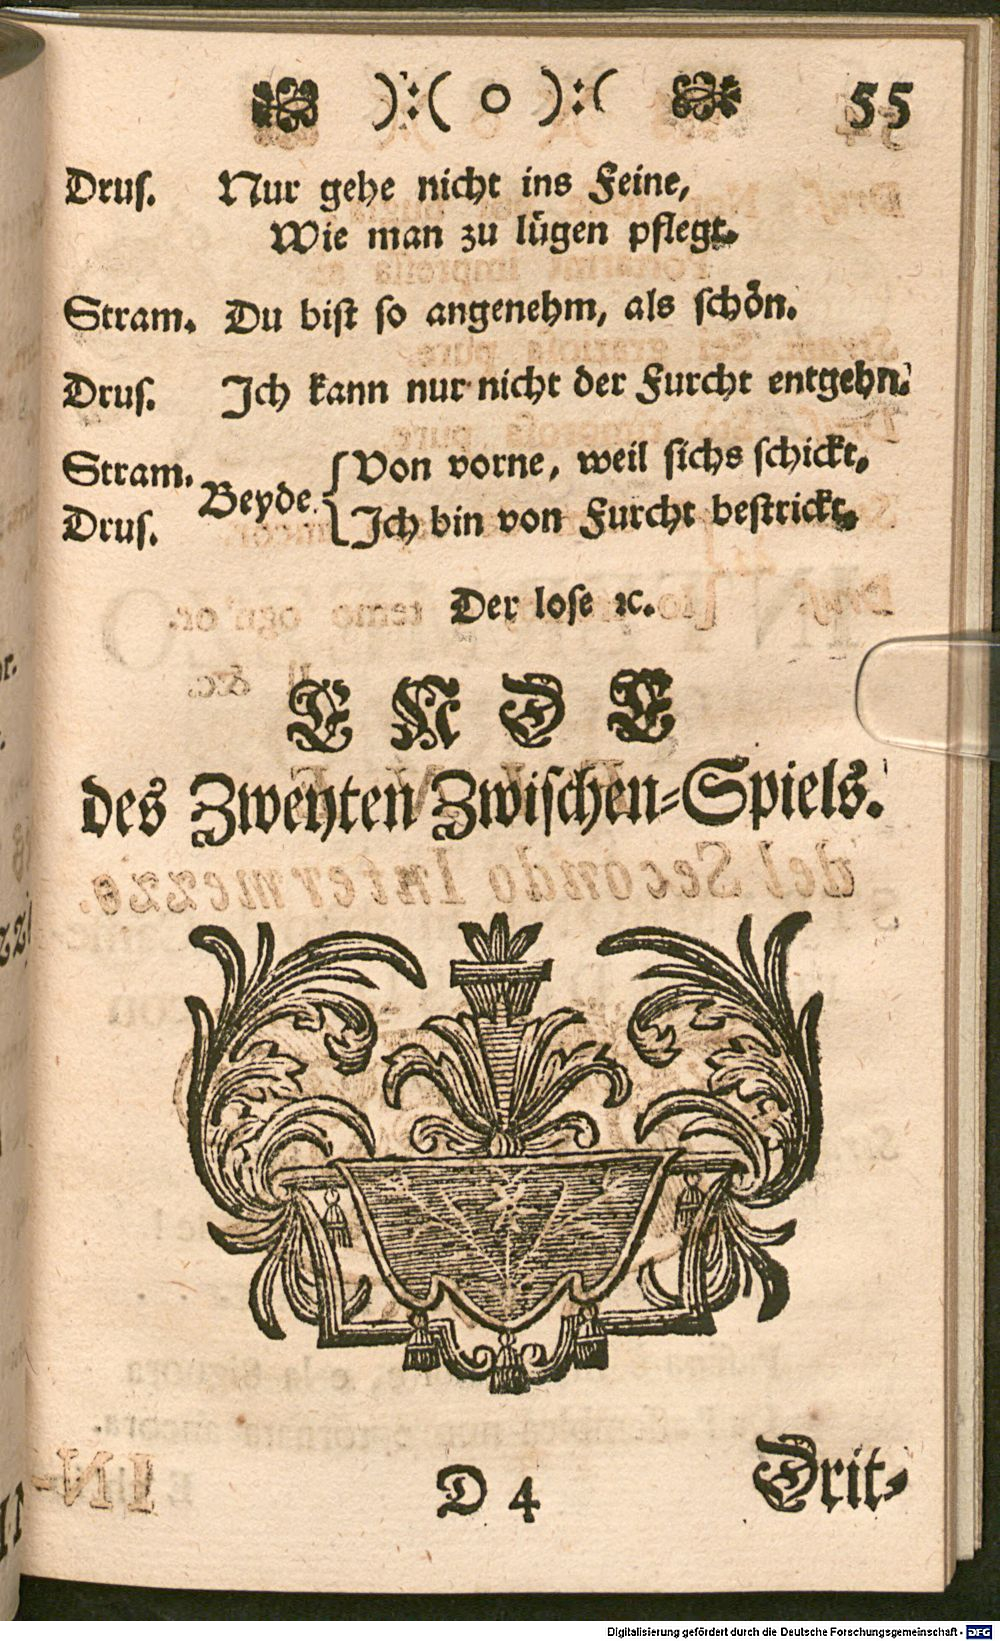 ):( o ):( 55
Drus. Nur gehe nicht ins Feine,
Wie man zu lügen pflegt.
Stram. Du bist so angenehm, als schön.
Drus. Ich kann nur nicht der Furcht entgehn.
Stram. Beyde. Von vorne, weil sichs schickt.
Drus. Ich bin von Furcht bestrickt.
Der lose ꝛc.
ENDE
des Zweyten Zwischen-Spiels.
D 4 Drit-
Digitalisierung gefördert durch die Deutsche Forschungsgemeinschaft - DFG